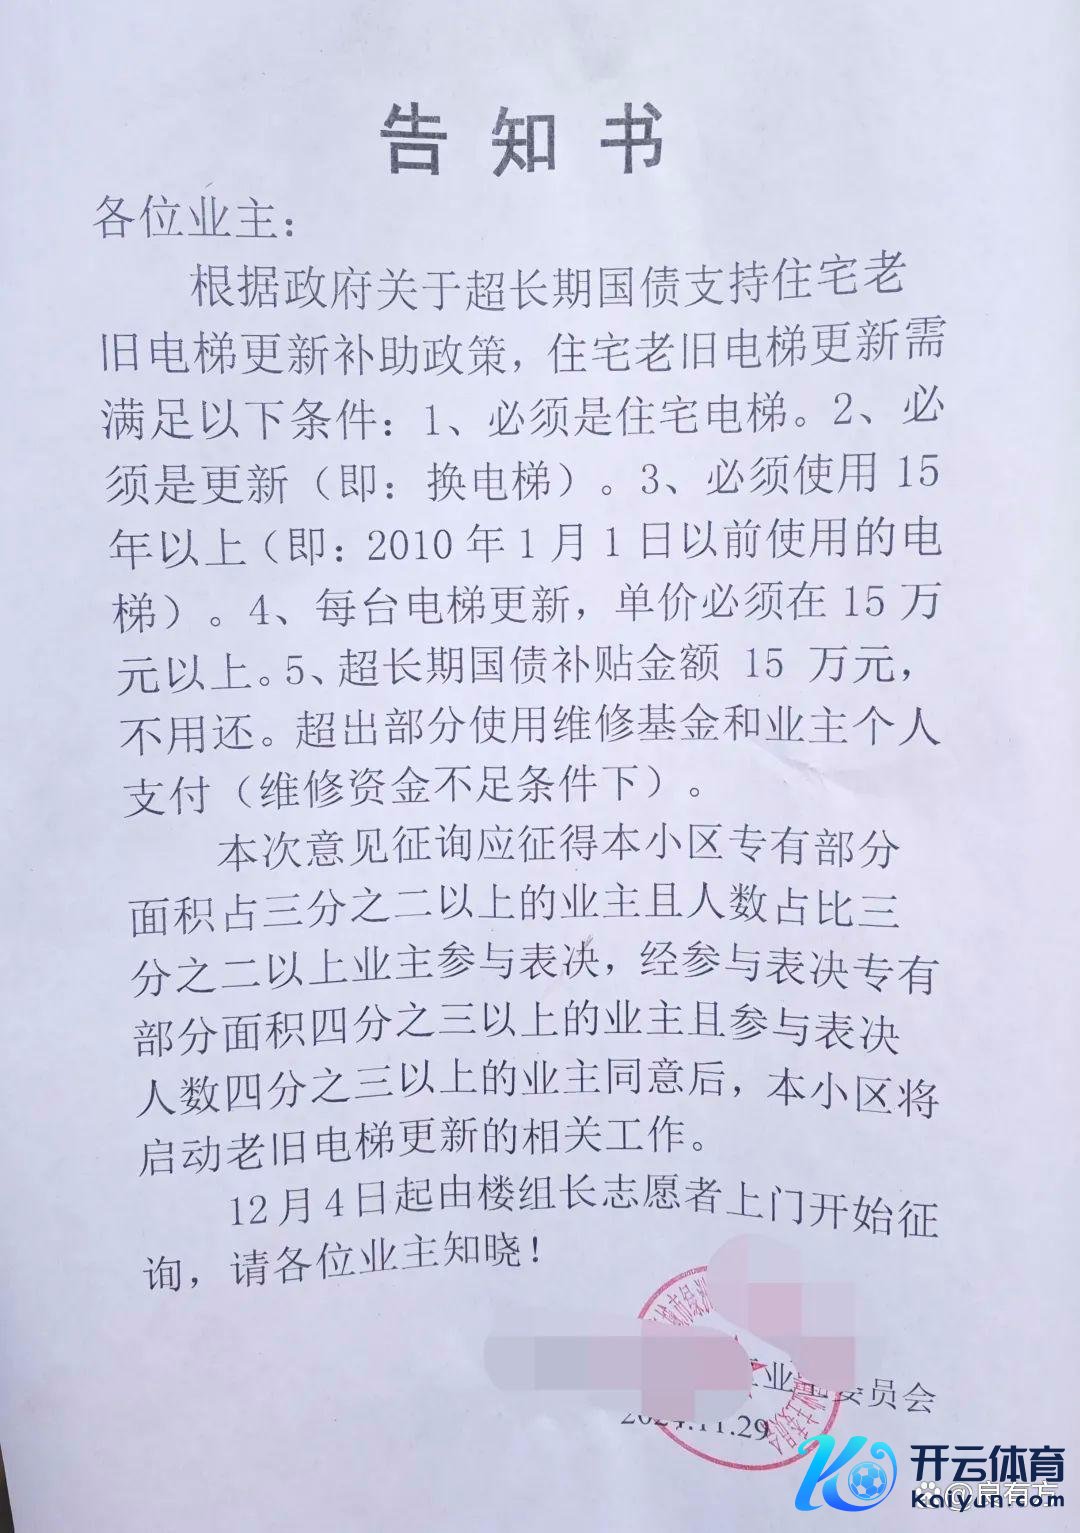 告知书
各位业主：
根据政府关于超长期国债支持住宅老
旧电梯更新补助政策，住宅老旧电梯更新需
满足以下条件：1、必须是住宅电梯。2、必
须是更新（即：换电梯）。3、必须使用 15
年以上（即：2010 年 1 月 1 日以前使用的电
梯）。4、每台电梯更新，单价必须在 15 万
元以上。5、超长期国债补贴金额 15 万元，
不用还。超出部分使用维修基金和业主个人
支付（维修资金不足条件下）。
本次意见征询应征得本小区专有部分
面积占三分之二以上的业主且人数占比三
分之二以上业主参与表决，经参与表决专有
部分面积四分之三以上的业主且参与表决
人数四分之三以上的业主同意后，本小区将
启动老旧电梯更新的相关工作。
12 月 4 日起由楼组长志愿者上门开始征
询，请各位业主知晓！
业主委员会
2024.11.29
开云体育
kaiyun.com